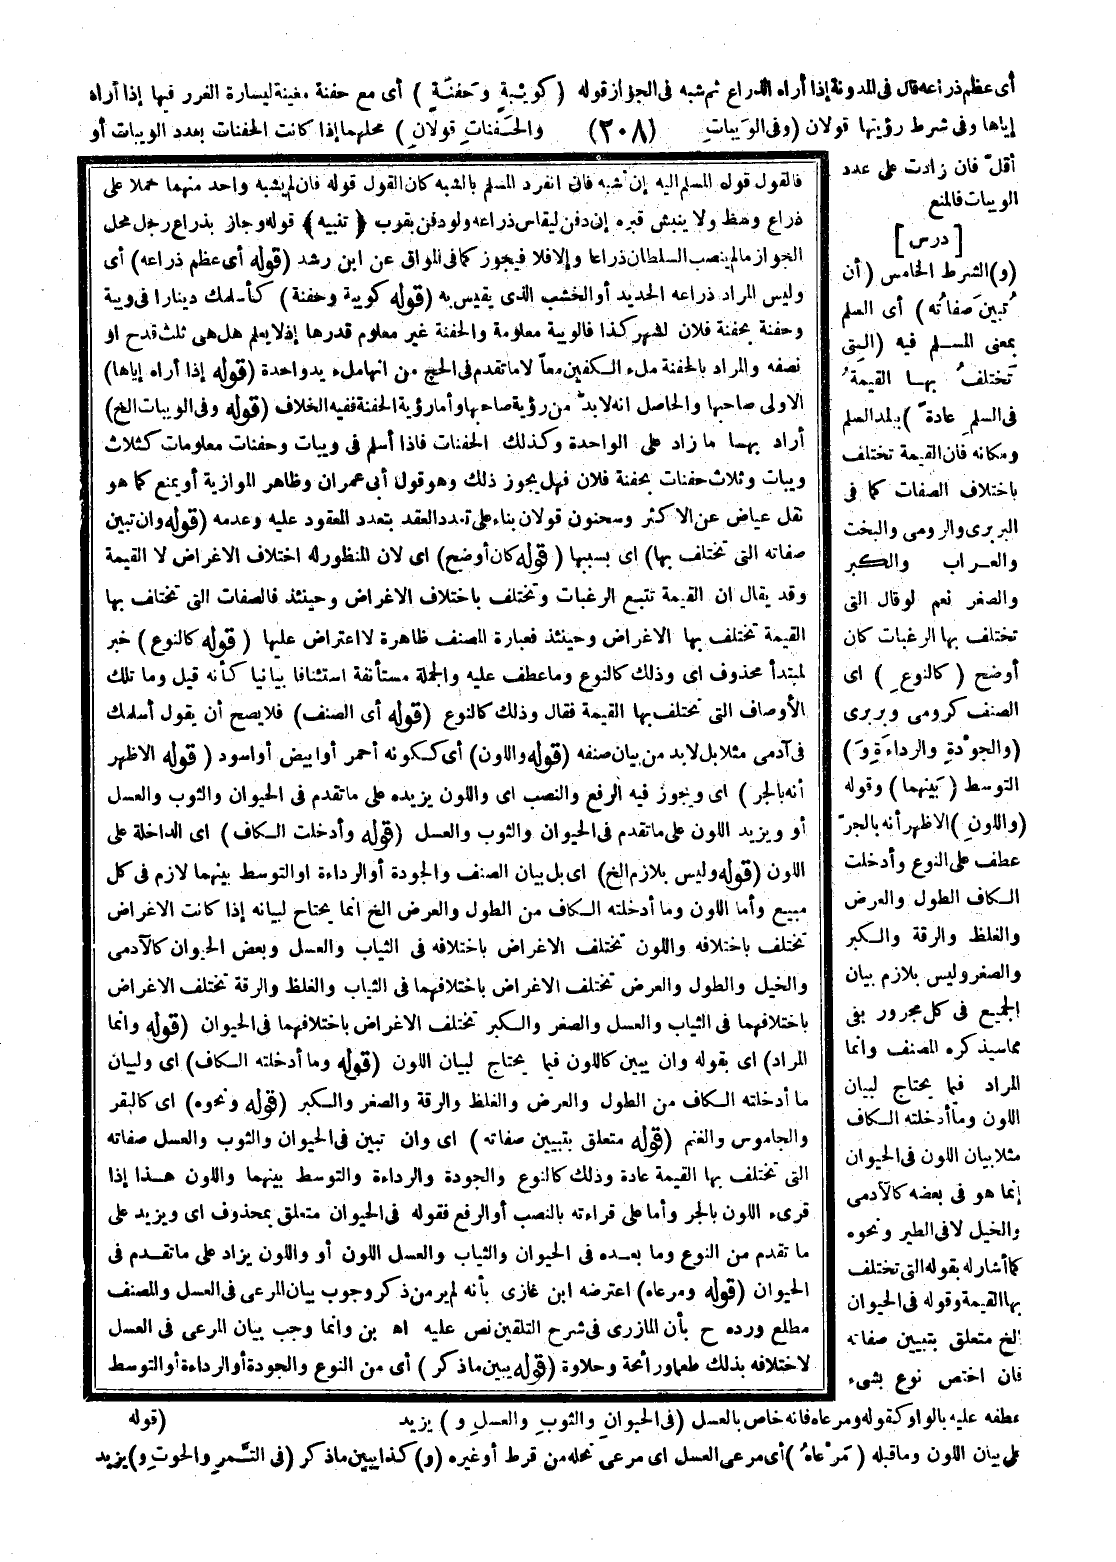 أى عظم ذراعه قال فى المدونة إذا أراه الذراع ثم شبه فى الجواز قوله (كويبةٍ وحَفنةٍ) أى مع حفنة معينة ليسارة الغرر فيها إذا أراه
إياها وفى شرط رؤيتها قولان (وفى الوَيباتِ (٢٠٨) والحَفناتِ قولانِ) محلهما إذا كانت الحفنات بعدد الويبات أو
أقلّ فان زادت على عدد
الويبات فالمنع
[درس]
(و) الشرط الخامس (أن
تُبين صفاتُه) أى السلم
بمعنى المسلم فيه (التِى
تختلفُ بها القيمةُ
فى السلمِ عادةً) ببلد السلم
ومكانه فان القيمة تختلف
باختلاف الصفات كما فى
البربرى والرومى والبخت
والعراب والكبر
والصغر نعم لو قال التى
تختلف بها الرغبات كان
أوضح (كالنوعِ) اى
الصنف كرومى وبربرى
(والجوْدةِ والرداءَةِ وَ)
التوسط (بَينهما) وقوله
(واللونِ) الاظهر أنه بالجرّ
عطف على النوع وأدخلت
الكاف الطول والعرض
والغلظ والرقة والكبر
والصغر وليس بلازم بيان
الجميع فى كل مجرور بفى
مماسيذكره المصنف وانما
المراد فيما يحتاج لبيان
اللون وما أدخلته الكاف
مثلا بيان اللون فى الحيوان
إنما هو فى بعضه كالآدمى
والخيل لا فى الطير ونحوه
كما أشار له بقوله التى تختلف
بها القيمة وقوله فى الحيوان
الخ متعلق بتبيين صفاته
فان اختص نوع بشىء
عطفه عليه بالواو كقوله ومرعاه فانه خاص بالعسل (فى الحيوانِ والثوبِ والعسلِ و) يزيد
على بيان اللون وما قبله (مَرْعاهُ) أى مرعى العسل اى مرعى نحله من قرط أو غيره (و) كذا يبين ما ذكر (فى التَّمرِ والحوتِ و) يزيد
فالقول قول المسلم اليه إن أشبه فان انفرد المسلم بالشبه كان القول قوله فان لم يشبه واحد منهما حملا على
ذراع وسط ولا ينبش قبره إن دفن ليقاس ذراعه ولو دفن بقرب (تنبيه) قوله وجاز بذراع رجل محل
الجواز مالم ينصب السلطان ذراعا وإلا فلا فيجوز كما فى المواق عن ابن رشد (قوله أى عظم ذراعه) أى
وليس المراد ذراعه الحديد أو الخشب الذى يقيس به (قوله كويبة وحفنة) كأسلمك دينارا فى ويبة
وحفنة بحفنة فلان لشهر كذا فالويبة معلومة والحفنة غير معلوم قدرها إذ لا يعلم هل هى ثلث قدح او
نصفه والمراد بالحفنة ملء الكفين معاً لا ما تقدم فى الحج من انها ملء يد واحدة (قوله إذا أراه إياها)
الاولى صاحبها والحاصل انه لابدّ من رؤية صاحبها وأما رؤية الحفنة ففيه الخلاف (قوله وفى الويبات الخ)
أراد بهما ما زاد على الواحدة وكذلك الحفنات فاذا أسلم فى ويبات وحفنات معلومات كثلاث
ويبات وثلاث حفنات بحفنة فلان فهل يجوز ذلك وهو قول أبى عمران وظاهر الموازية أو يمنع كما هو
نقل عياض عن الاكثر وسحنون قولان بناء على تعدد العقد بتعدد المعقود عليه وعدمه (قوله وان تبين
صفاته التى تختلف بها) اى بسببها (قوله كان أوضح) اى لان المنظور له اختلاف الاغراض لا القيمة
وقد يقال ان القيمة تتبع الرغبات وتختلف باختلاف الاغراض وحينئذ فالصفات التى تختلف بها
القيمة تختلف بها الاغراض وحينئذ فعبارة المصنف ظاهرة لا اعتراض عليها (قوله كالنوع) خبر
لمبتدأ محذوف اى وذلك كالنوع وما عطف عليه والجملة مستأنفة استئنافا بيانيا كأنه قيل وما تلك
الأوصاف التى تختلف بها القيمة فقال وذلك كالنوع (قوله أى الصنف) فلا يصح أن يقول أسلمك
فى آدمى مثلا بل لابد من بيان صنفه (قوله واللون) أى ككونه أحمر أو ابيض أو اسود (قوله الاظهر
أنه بالجر) اى ويجوز فيه الرفع والنصب اى واللون يزيده على ما تقدم فى الحيوان والثوب والعسل
أو ويزيد اللون على ما تقدم فى الحيوان والثوب والعسل (قوله وأدخلت الكاف) اى الداخلة على
اللون (قوله وليس بلازم الخ) اى بل بيان الصنف والجودة أو الرداءة او التوسط بينهما لازم فى كل
مبيع وأما اللون وما أدخلته الكاف من الطول والعرض الخ انما يحتاج لبيانه إذا كانت الاغراض
تختلف باختلافه واللون تختلف الاغراض باختلافه فى الثياب والعسل وبعض الحيوان كالآدمى
والخيل والطول والعرض تختلف الاغراض باختلافهما فى الثياب والغلظ والرقة تختلف الاغراض
باختلافهما فى الثياب والعسل والصغر والكبر تختلف الاغراض باختلافهما فى الحيوان (قوله وانما
المراد) اى بقوله وان يبين كاللون فيما يحتاج لبيان اللون (قوله وما أدخلته الكاف) اى ولبيان
ما أدخلته الكاف من الطول والعرض والغلظ والرقة والصغر والكبر (قوله ونحوه) اى كالبقر
والجاموس والغنم (قوله متعلق بتبيين صفاته) اى وان تبين فى الحيوان والثوب والعسل صفاته
التى تختلف بها القيمة عادة وذلك كالنوع والجودة والرداءة والتوسط بينهما واللون هذا إذا
قرىء اللون بالجر وأما على قراءته بالنصب أو الرفع فقوله فى الحيوان متعلق بمحذوف اى ويزيد على
ما تقدم من النوع وما بعده فى الحيوان والثياب والعسل اللون أو واللون يزاد على ما تقدم فى
الحيوان (قوله ومرعاه) اعترضه ابن غازى بأنه لم ير من ذكر وجوب بيان المرعى فى العسل والمصنف
مطلع ورده ح بأن المازرى فى شرح التلقين نص عليه اه بن وانما وجب بيان المرعى فى العسل
لاختلافه بذلك طعما ورائحة وحلاوة (قوله يبين ما ذكر) أى من النوع والجودة أو الرداءة أو التوسط
(قوله